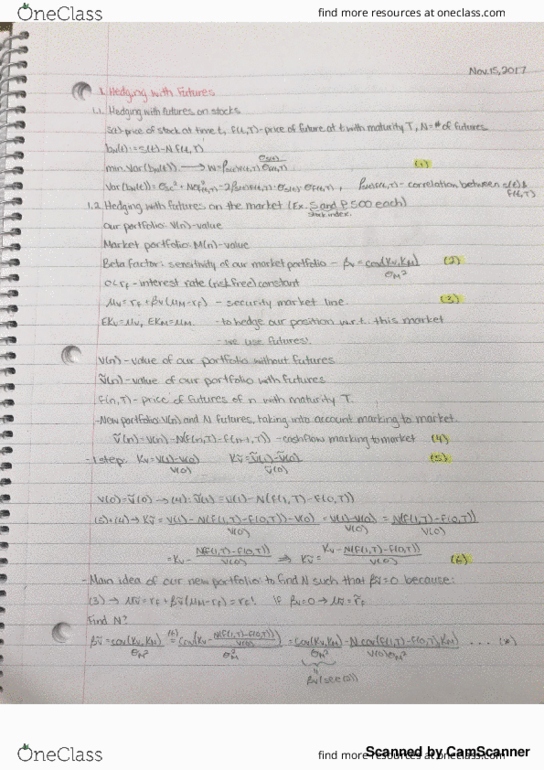 OneClass
find more resources at oneclass.com
Nov.15,2017
1. Hedging with Futures
1.1. Hedging with futures on stocks
S(t)-price of stock at time t, F(t,T)-price of future at t with maturity T, N=# of futures
bN(t):=S(t)-NF(t,T)
min var(bN(t)) → N=
(1)
Var(bN(t))=
correlation between S(t)&F(t,T)
1.2 Hedging with futures on the market (Ex. S and P 500 each)
stock index.
Our portfolio: V(n)-value
Market portfolio: M(n)-value
Beta factor: sensitivity of our market portfolio - βv=cov(Kv,KM)/σM² (2)
0<rF-interest rate (risk free) constant
μv=rF+βv(μM-rF) - security market line. (3)
EKv=μv, EKM=μM. - to hedge our position w.r.t. this market
- we use futures!
V(n)-value of our portfolio without futures
Ṽ(n)-value of our portfolio with futures
f(n,T)-price of futures of n with maturity T.
-New portfolio: V(n) and N futures, taking into account marking to market.
Ṽ(n)=V(n)-N(f(n,T)-f(n-1,T)) -cashflow marking to market (4)
-1 step: Kv=V(1)-V(0)/V(0) Kṽ=Ṽ(1)-Ṽ(0)/Ṽ(0) (5)
V(0)=Ṽ(0)→(4): Ṽ(1)=V(1)-N(f(1,T)-f(0,T))
(5)+(4)→Kṽ=V(1)-N(f(1,T)-f(0,T))-V(0)/V(0)=V(1)-V(0)/V(0)=N(f(1,T)-f(0,T))/V(0)
=Kv-N(f(1,T)-f(0,T))/V(0) ⇒ Kṽ=Kv-N(f(1,T)-f(0,T))/V(0) (6)
-Main idea of our new portfolio: to find N such that βṽ=0 because:
(3)→ μṽ=rF+βṽ(μM-rF)=rF! if βṽ=0→μṽ=rF
Find N?
βṽ=cov(Kṽ,KM)/σM² (6)= cov(Kv-N(f(1,T)-f(0,T))/V(0),KM)/σM²=cov(Kv,KM)/σM²-N cov(f(1,T)-f(0,T),KM)/V(0)σM² .... (*)
βv(see(2))
Scanned by CamScanner
OneClass
find more resources at oneclass.com